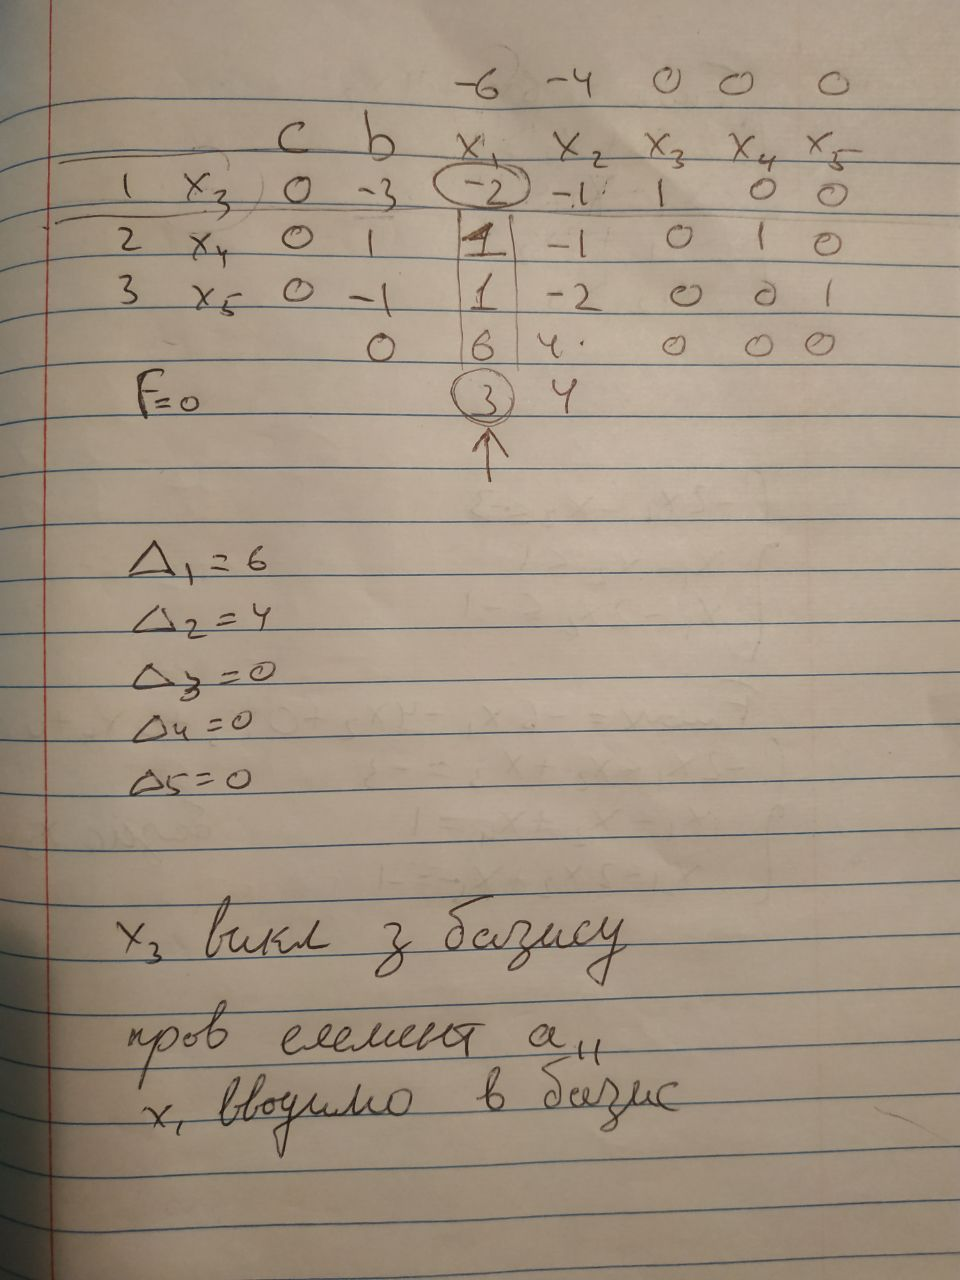 -6 -4 0 0 0
c b x₁ x₂ x₃ x₄ x₅
1 x₃ 0 -3 -2 -1 1 0 0
2 x₄ 0 1 1 -1 0 1 0
3 x₅ 0 -1 1 -2 0 0 1
0 6 4 0 0 0
F=0 3 4
Δ₁ = 6
Δ₂ = 4
Δ₃ = 0
Δ₄ = 0
Δ5 = 0
x₃ викл з базису
пров елемент a₁₁
x₁ вводимо в базис